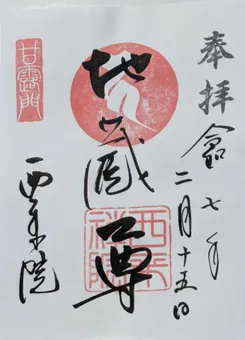 奉拝
令七年
二月十五日
地蔵尊
甘露門
西来院
西来
禅院